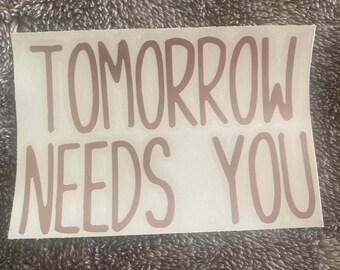 TOMORROW
NEEDS YOU